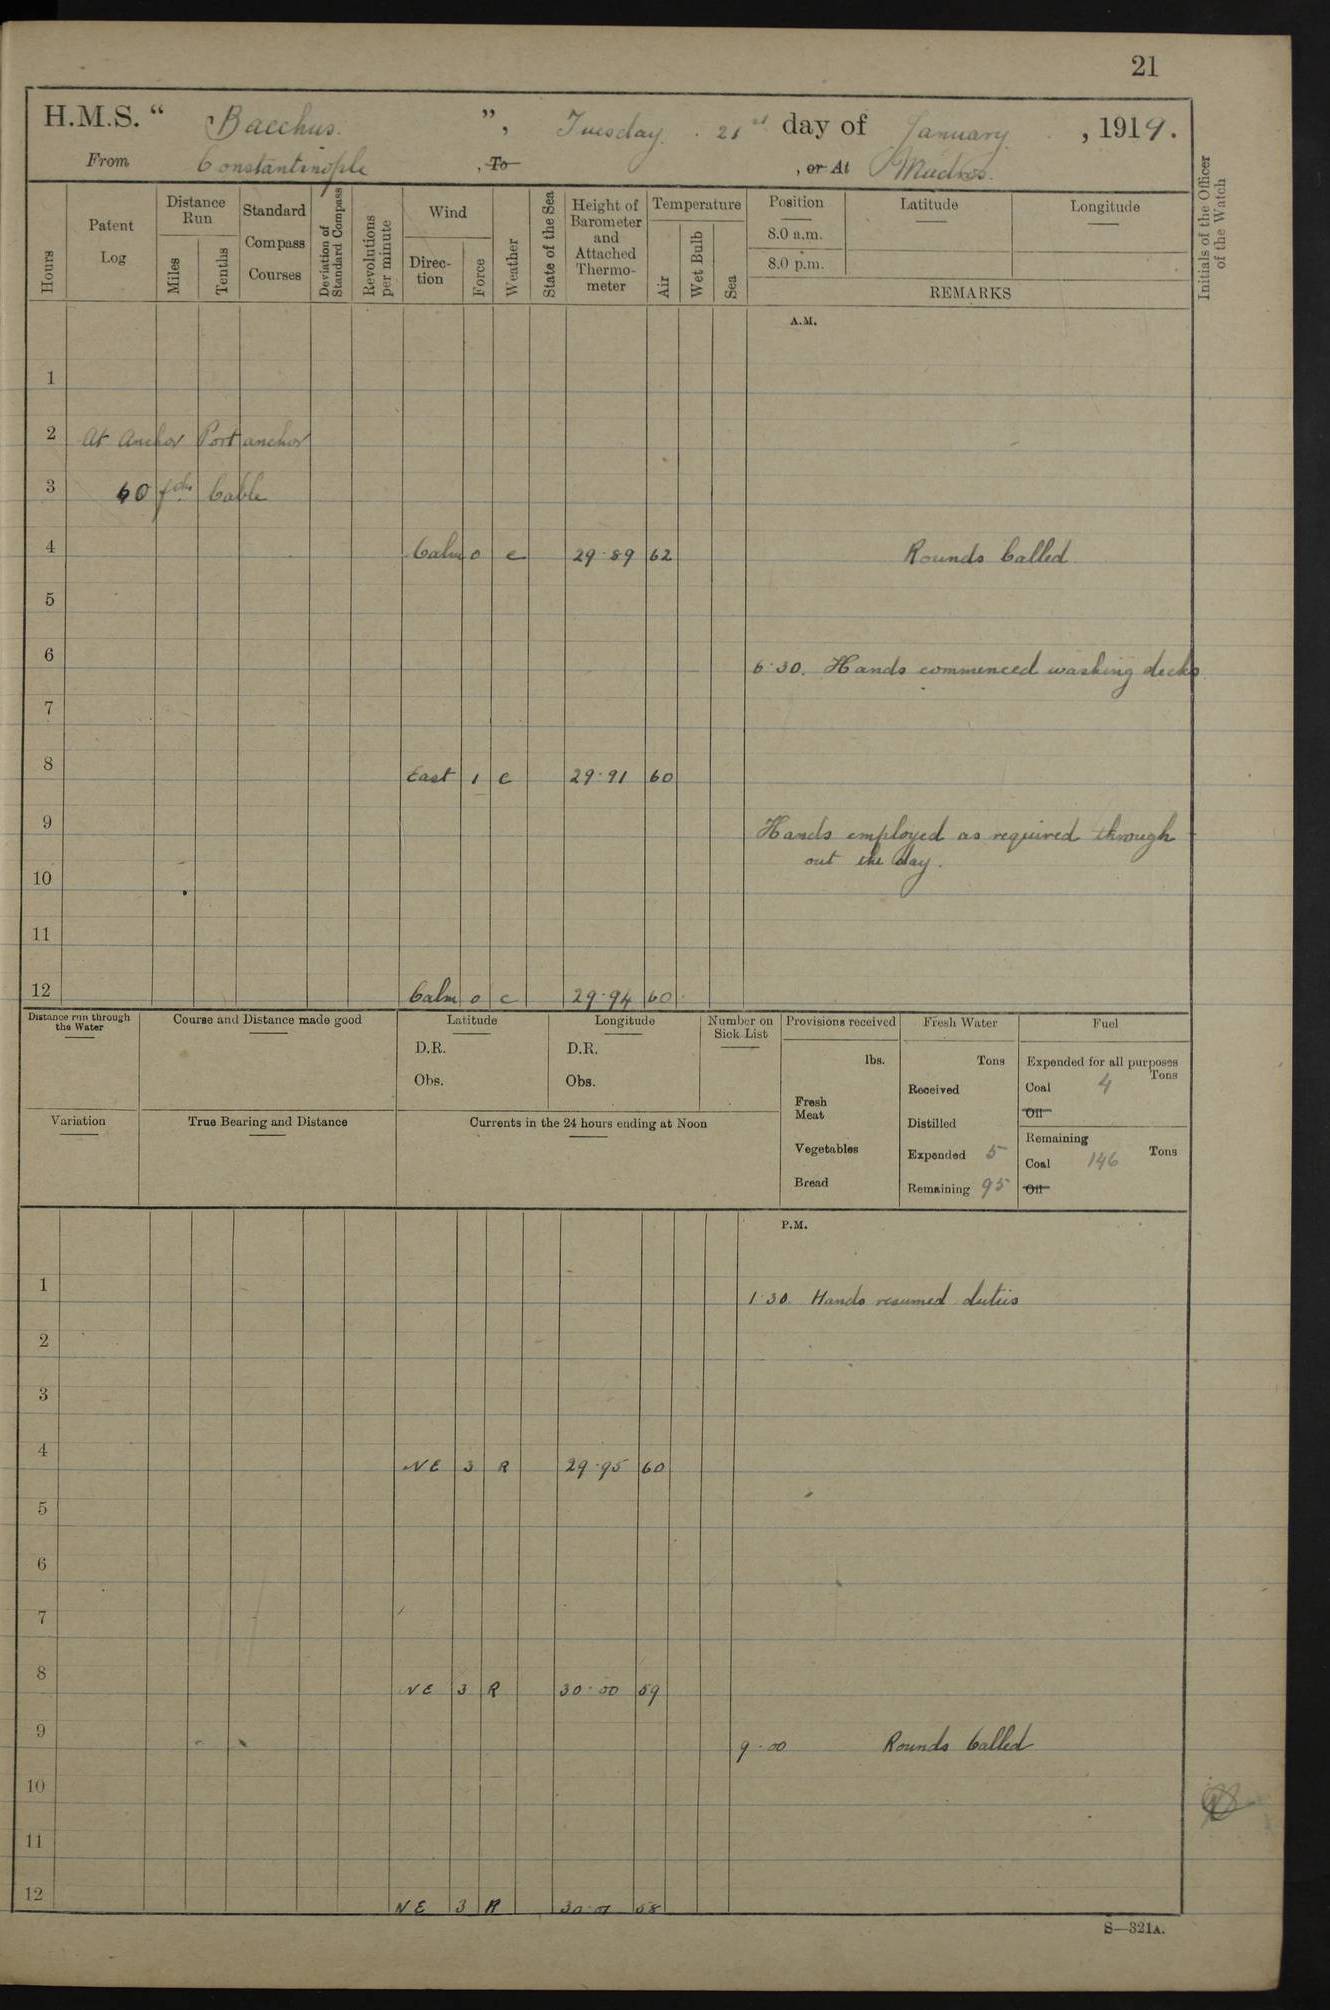 21
H.M.S. " Bacchus. ", Tuesday. 21st day of January, 1919.
From Constantinople, To , or At Mudros.
Hours
Patent Log
Distance Run
Miles
Tenths
Standard Compass Courses
Deviation of Standard Compass
Revolutions per minute
Wind
Direc-tion
Force
Weather
State of the Sea
Height of Barometer and Attached Thermo-meter
Temperature
Air
Wet Bulb
Sea
Position
8.0 a.m.
8.0 p.m.
Latitude
Longitude
REMARKS
Initials of the Officer of the Watch
A.M.
1
2 At Anchor Port anchor
3 60 fths Cable
4 Calm 0 c 29.89 62 Rounds Called
5
6 6.30. Hands commenced washing decks
7
8 East 1 c 29.91 60
9 Hands employed as required through-
out the day.
10
11
12 Calm 0 c 29.94 60
Distance run through the Water
Course and Distance made good
Latitude
D.R.
Obs.
Longitude
D.R.
Obs.
Number on Sick List
Provisions received
lbs.
Fresh Meat
Vegetables
Bread
Fresh Water
Tons
Received
Distilled
Expended 5
Remaining 95
Fuel
Expended for all purposes
Tons
Coal 4
Oil
Remaining
Tons
Coal 146
Oil
Variation
True Bearing and Distance
Currents in the 24 hours ending at Noon
P.M.
1 1.30. Hands resumed duties
2
3
4 NE 3 R 29.95 60
5
6
7
8 NE 3 R 30.00 59
9 9.00 Rounds Called
10
11
12 NE 3 R 30.01 58
S—321A.